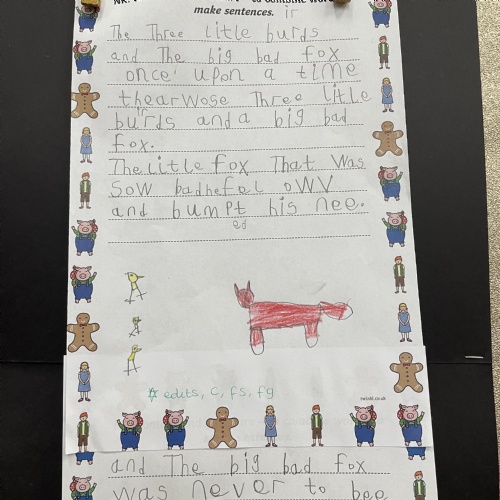 make sentences.
ir
The Three little burds
and The big bad fox
once upon a time
thearwose Three little
burds and a big bad
fox.
The little fox That was
Sow bad he fel owv
and bumpt his nee.
ed
* edits, c, fs, fg
twinkl.co.uk
and The big bad fox
was never to bee